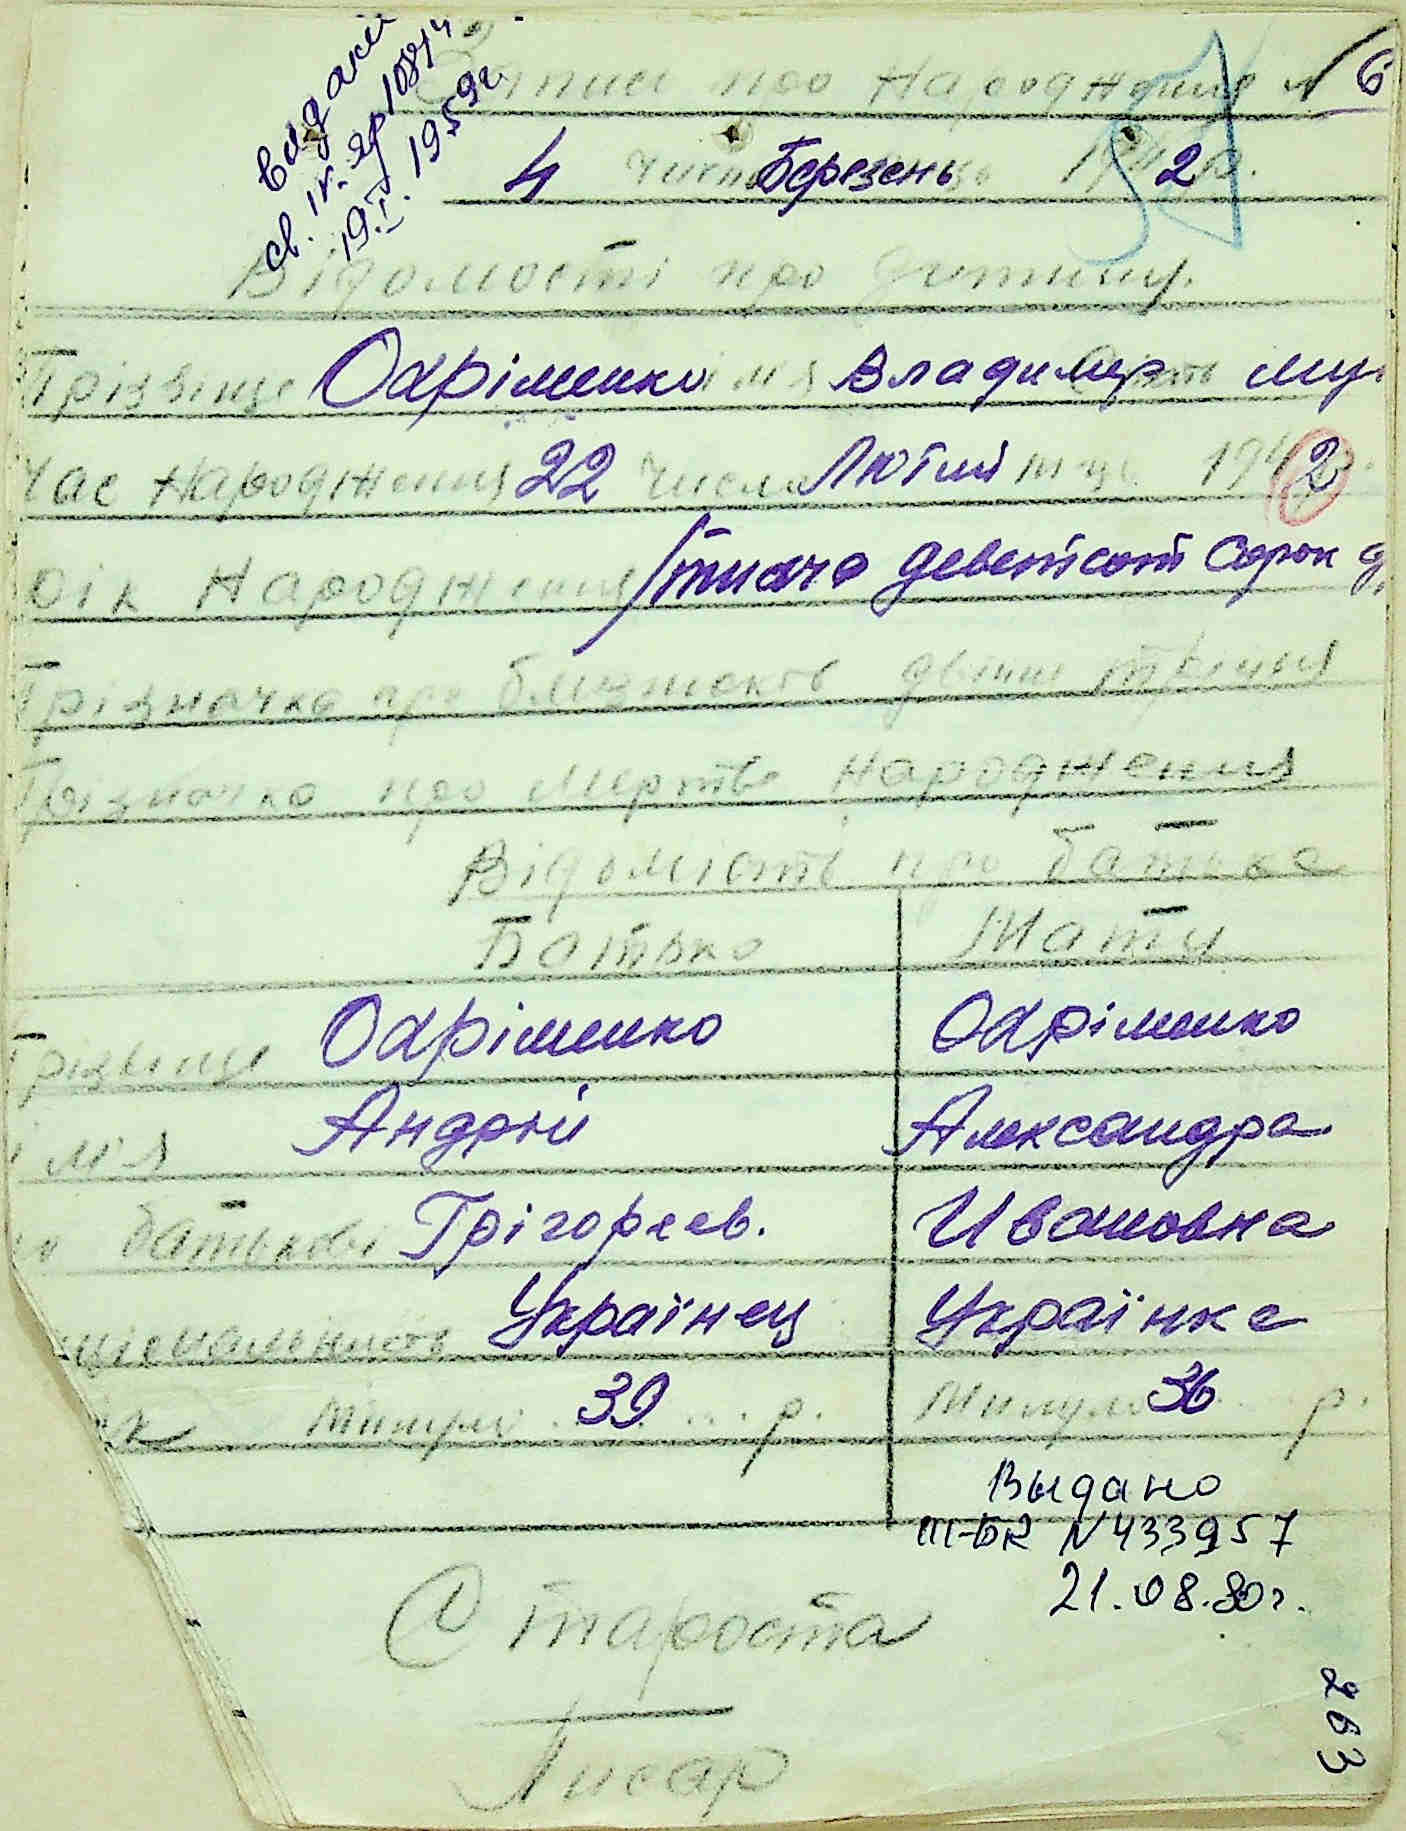 Видано
св. іг. эр 108/4
19.I. 1959г
Запис про Народження № 6
4 числа Березень 1942 р.
Відомості про дитину.
Прізвище Охріменко імя Владимер стать муж
Час Народження 22 числа Лютий м-ця 1942 р.
рік Народження тисяча деветсот сорок д
Прізначка про близнюків двійні трійня
Прізначка про мертве народження
Відомість про батьків
Батько Мати
Прізвище Охріменко Охріменко
імя Андрій Александра
по батькові Грігорєев. Ивановна
національність Українец Українка
рік минуло 39 р. Минуло 36 р.
Выдано
III-БК N 433957
21.08.80г.
Староста
Писар
263